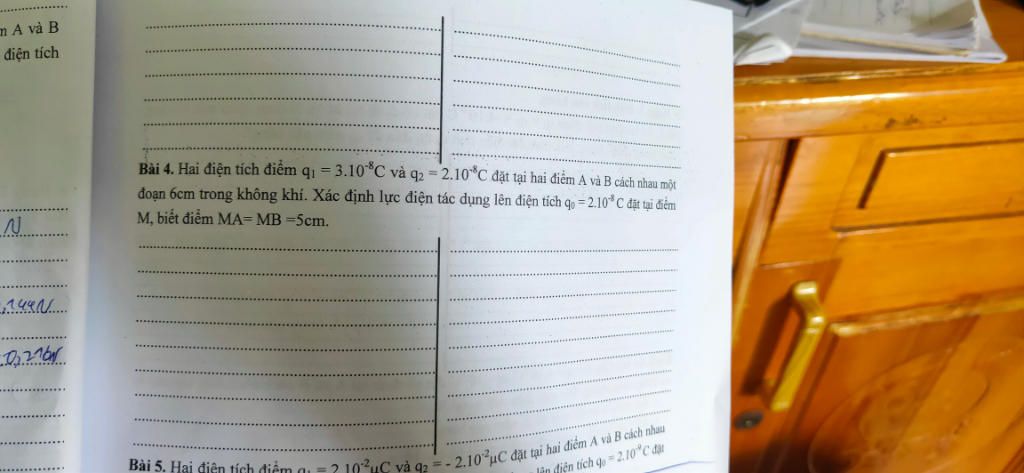 A và B
điện tích
N
,144N
0,216N
Bài 4. Hai điện tích điểm q₁ = 3.10⁻⁸C và q₂ = 2.10⁻⁸C đặt tại hai điểm A và B cách nhau một
đoạn 6cm trong không khí. Xác định lực điện tác dụng lên điện tích q₀ = 2.10⁻⁸ C đặt tại điểm
M, biết điểm MA= MB =5cm.
Bài 5. Hai điện tích điểm q₁ = 2.10⁻²μC và q₂ = - 2.10⁻²μC đặt tại hai điểm A và B cách nhau
lên điện tích q₀ = 2.10⁻⁹ C đặt